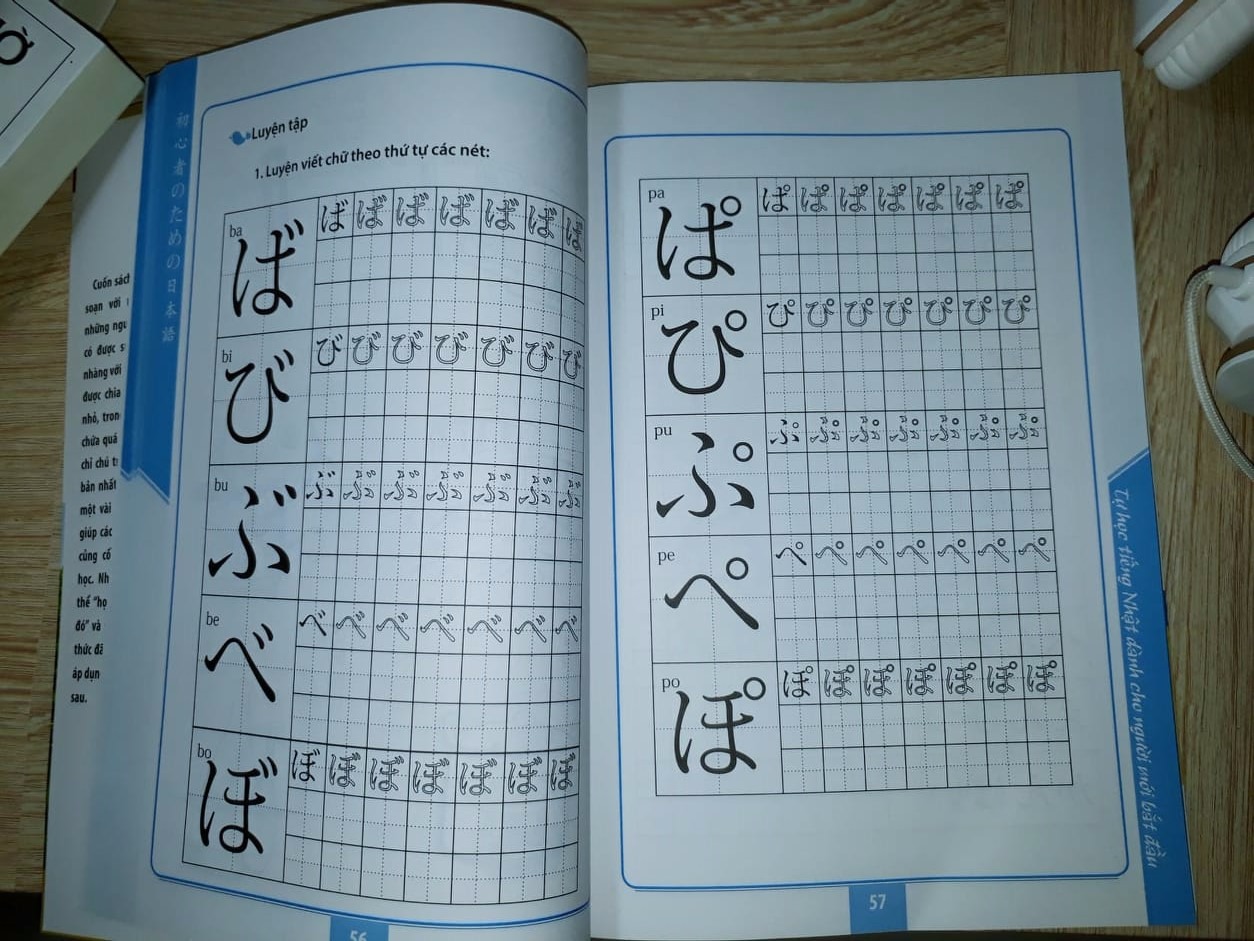 初心者のための日本語
Cuốn sách
soạn với
những ngư
có được s
nhàng với
được chia
nhỏ, tron
chứa quá
chỉ chú t
bản nhất
một vài
giúp các
củng cố
học. Nh
thể "họ
đó" và
thức đã
áp dụn
sau.
Luyện tập
1. Luyện viết chữ theo thứ tự các nét:
ba
ば ば ば ば ば ば ば ば
bi
び び び び び び び び
bu
ぶ ぶ ぶ ぶ ぶ ぶ ぶ ぶ
be
べ べ べ べ べ べ べ べ
bo
ぼ ぼ ぼ ぼ ぼ ぼ ぼ ぼ
56
pa
ぱ ぱ ぱ ぱ ぱ ぱ ぱ ぱ
pi
ぴ ぴ ぴ ぴ ぴ ぴ ぴ ぴ
pu
ぷ ぷ ぷ ぷ ぷ ぷ ぷ ぷ
pe
ぺ ぺ ぺ ぺ ぺ ぺ ぺ ぺ
po
ぽ ぽ ぽ ぽ ぽ ぽ ぽ ぽ
57
Tự học tiếng Nhật dành cho người mới bắt đầu